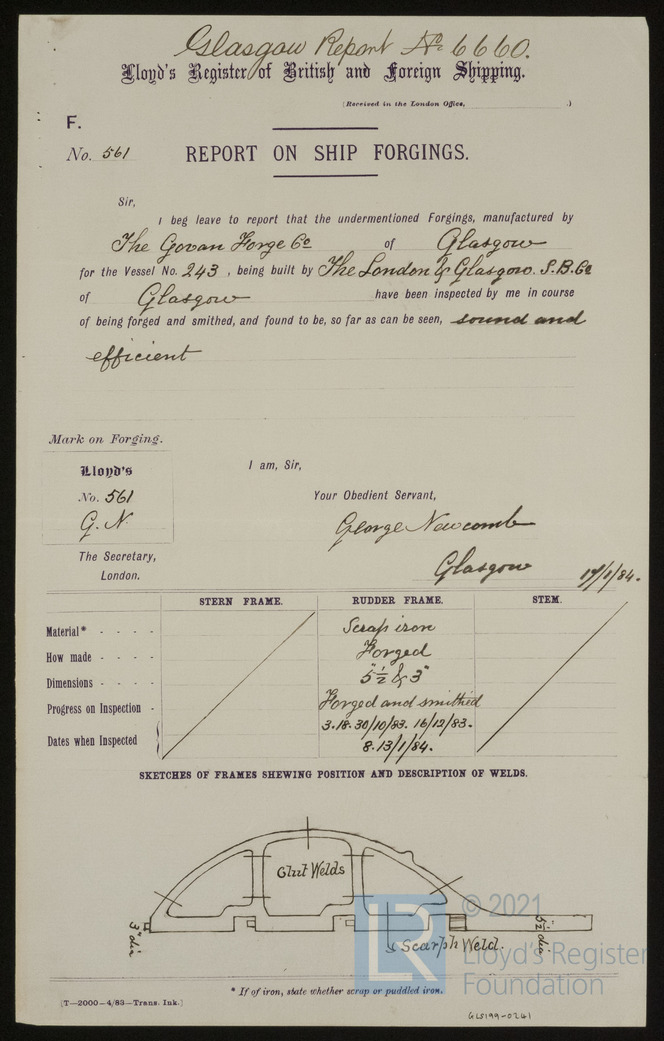 Glasgow Report No 6660.
Lloyd's Register of British and Foreign Shipping.
(Received in the London Office, .)
F.
No. 561
REPORT ON SHIP FORGINGS.
Sir,
I beg leave to report that the undermentioned Forgings, manufactured by
The Govan Forge Co of Glasgow
for the Vessel No. 243, being built by The London & Glasgow. S.B.Co
of Glasgow have been inspected by me in course
of being forged and smithed, and found to be, so far as can be seen, sound and
efficient
Mark on Forging.
Lloyd's
No. 561
G. N.
I am, Sir,
Your Obedient Servant,
George Newcomb
Glasgow 17/1/84.
The Secretary,
London.
STERN FRAME. RUDDER FRAME. STEM.
Material* - - - - Scrap iron
How made - - - - Forged
Dimensions - - - - 5½" & 3"
Progress on Inspection - Forged and smithed
Dates when Inspected 3.18.30/10/83. 16/12/83.
8.13/1/84.
SKETCHES OF FRAMES SHEWING POSITION AND DESCRIPTION OF WELDS.
Glut Welds
3" dia
Scarph Weld.
5½" dia
LR
© 2021
Lloyd's Register
Foundation
* If of iron, state whether scrap or puddled iron.
(T—2000—4/83—Trans. Ink.)
GLS199-0241